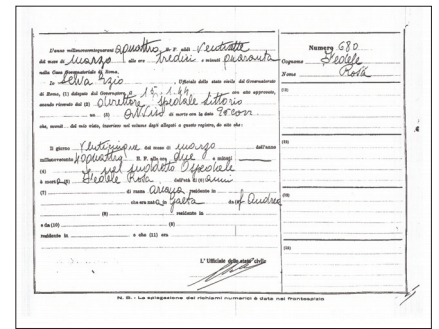 L'anno millenovecentoquarantaquattro E. F. addì Ventisette
del mese di marzo alle ore tredici e minuti quaranta
nella Casa Governatoriale di Roma.
Io Selva Ezio, Ufficiale dello stato civile del Governatorato
di Roma, (1) delegato dal Governatore, 15.1.44 ora atto approvato,
avendo ricevuto dal (2) direttore spedale Littorio
un (3) avviso di morte con la data 28 corr.
che, munito del mio visto, inserisco nel volume degli allegati a questo registro, do atto che:
Il giorno Ventisei del mese di marzo dell'anno
millenovecento E. F. alle ore due e minuti
(4) è nel suddetto Ospedale
è morta (5) Fedele Rosa dell'età di (6) anni
(7) di razza ariana residente in
che era nata in Gaeta da (8) f Andrea
(9) residente in
e da (10) (9)
residente in e che (11) era
L'Ufficiale dello stato civile
Numero 680
Cognome Fedele
Nome Rosa
(12)
(12)
(12)
(12)
N. B. - La spiegazione dei richiami numerici è data nel frontespizio